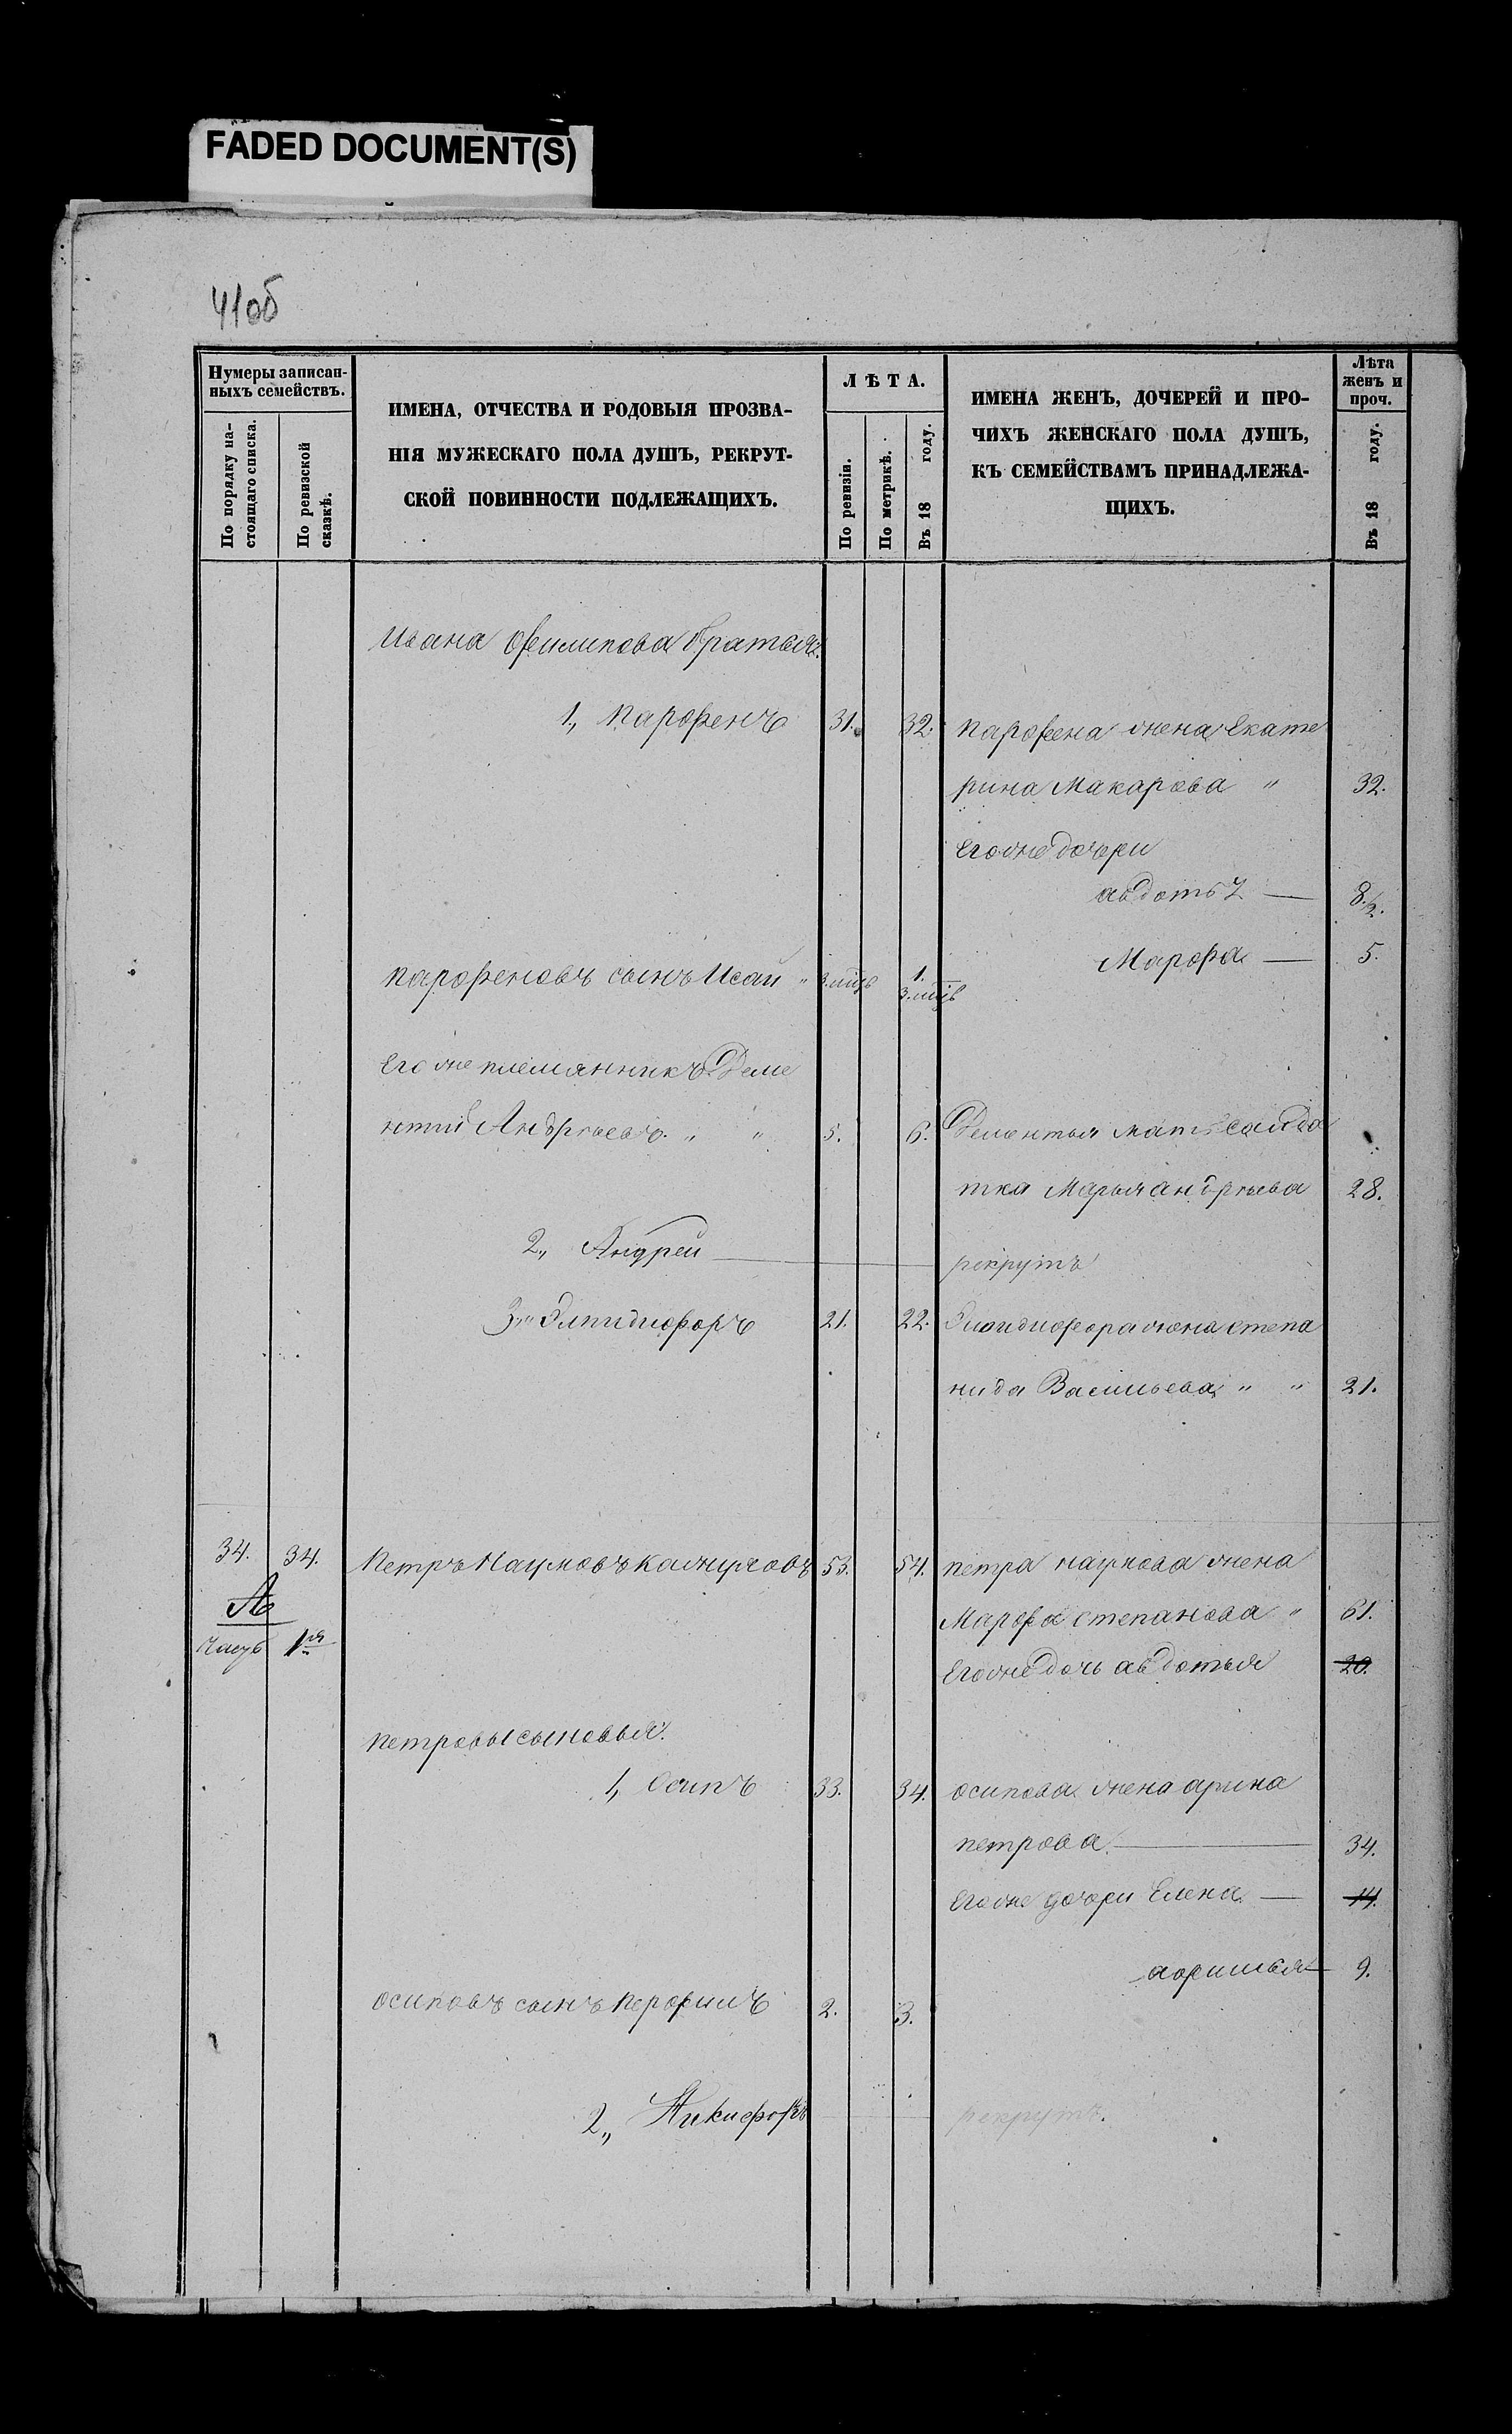 FADED DOCUMENT(S)
41об
Нумеры записан-
ныхъ семействъ.
По порядку на-
стоящаго списка.
По ревизской
сказкѣ.
ИМЕНА, ОТЧЕСТВА И РОДОВЫЯ ПРОЗВА-
НІЯ МУЖЕСКАГО ПОЛА ДУШЪ, РЕКРУТ-
СКОЙ ПОВИННОСТИ ПОДЛЕЖАЩИХЪ.
ЛѢТА.
По ревизіи.
По метрикѣ.
Въ 18 году.
ИМЕНА ЖЕНЪ, ДОЧЕРЕЙ И ПРО-
ЧИХЪ ЖЕНСКАГО ПОЛА ДУШЪ,
КЪ СЕМЕЙСТВАМЪ ПРИНАДЛЕЖА-
ЩИХЪ.
Лѣта
женъ и
проч.
Въ 18 году.
Ивана Филипова братья:
1., Парфенъ 31. 32. Парфена жена Екате
рина Макарова " 32.
Его же дочери
авдотья — 8 1/2.
Марфа — 5.
Парфеновъ сынъ Исай " 3. мцъ 1. 3. мцъ
Его же племянникъ Деме
нтий Андрѣевъ. " " 5. 6. Дементья мать солда
тка Марья андрѣева 28.
2., Андрей — рекрутъ
3., Элпидифоръ 21. 22. Элпидифора жена степа
нида Васильева " " 21.
34. 34. Петръ Наумовъ 53. 54. петра наумова жена
А
Марфа степанова " 61.
часть 1я
Его же дочь авдотья 20.
Петровы сыновья:
1, Осипъ 33. 34. осипова жена арина
петрова. — 34.
Его же дочери Елена — 14.
афимья — 9.
осиповъ сынъ Перфилъ 2. 3.
2., Никифоръ рекрутъ.